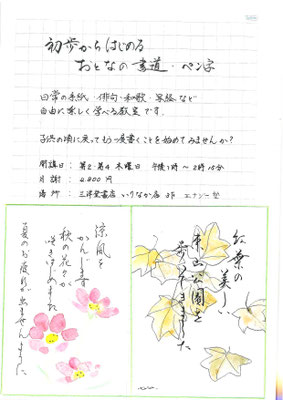 初歩からはじめる
おとなの書道・ペン字
日常の手紙・俳句・和歌・写経など
自由に楽しく学べる教室です。
子供の頃に戻ってもう一度書くことを始めてみませんか?
開講日: 第2・第4 木曜日 午後1時〜2時15分
月謝:
場所: 三洋堂書店 いりなか店 3F エナジー塾
紅葉の
美しい
東山公園を
歩いてきました
涼風を
かんじます
秋の花々が
咲きはじめました
夏のお疲れが出ませんように